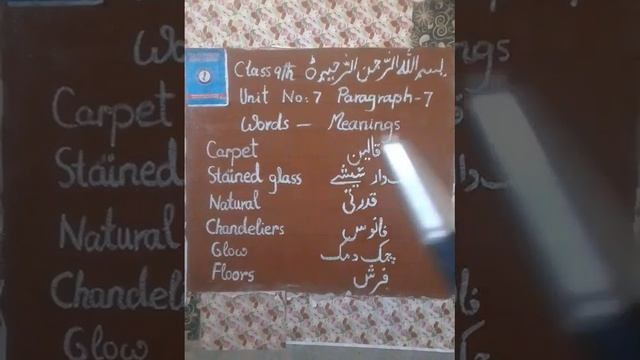 Class 9th بسم اللہ الرحمن الرحیم
Unit No: 7 Paragraph-7
Words – Meanings
Carpet قالین
Stained glass دار شیشے
Natural قدرتی
Chandeliers فانوس
Glow چمک دمک
Floors فرش